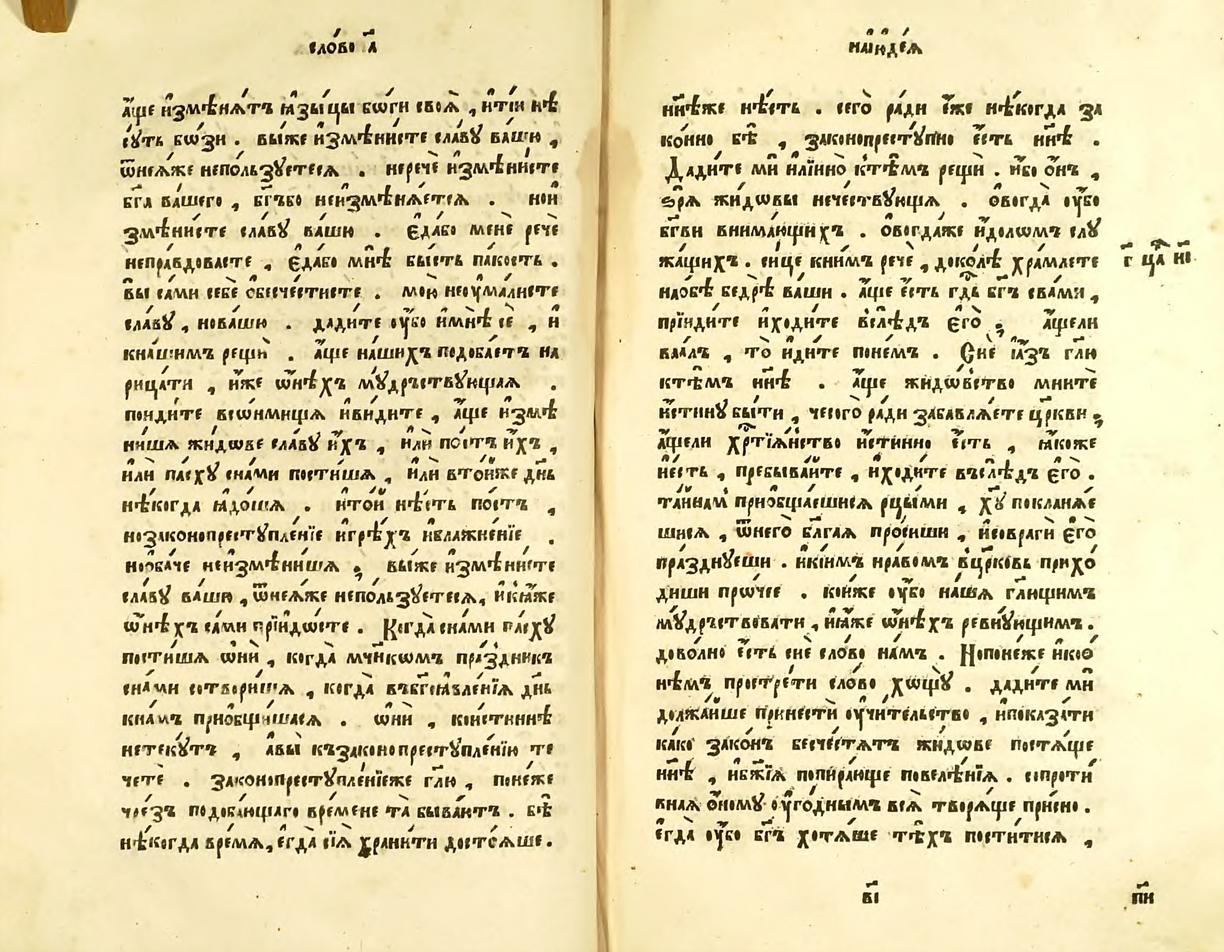 сло́во а҃
а҆́ще и҆змѣнѧ́тъ ꙗ҆зы́цы бѡ́ги своѧ̀ , и҆ті́и нѣ
сꙋ́ть бѡ́зи . вы́же и҆змѣни́сте сла́вꙋ ва́шю ,
ѿнеѧ́же непо́льзꙋетесѧ . неречѐ и҆змѣни́сте
бг҃а ва́шего , бг҃ъбо неи҆змѣнѧ́етсѧ . нои҆
змѣни́сте сла́вꙋ ва́шю . є҆да́бо менѐ речѐ
непра́вдовасте , є҆да́бо мнѣ̀ бы́сть па́кость .
вы́ сами себѐ ѡбесче́стисте . мою̀ неоумалисте
сла́вꙋ , нова́шю . дади́те оу҆̀бо и҆мнѣ̀ сѐ , и҆
кна́шимъ рещѝ . а҆́ще на́шихъ подоба́етъ на
рица́ти , и҆́же ѡ҆нѣ́хъ мꙋ́дръствꙋющаѧ .
поиди́те всѡ́нмищѧ и҆ви́дите , а҆́ще и҆змѣ
ни́шѧ жидо́ве сла́вꙋ и҆́хъ , и҆лѝ по́стъ и҆́хъ ,
и҆лѝ па́схꙋ сна́ми пости́шѧ , и҆лѝ вто́йже дн҃ь
нѣ́когда ꙗ҆до́шѧ . и҆то́й нѣ́сть по́стъ ,
нозаконопрестꙋпле́нїе и҆грѣ́хъ и҆влажне́нїе .
нои҆ба́че неи҆змѣни́шѧ ; вы́же и҆змѣни́сте
сла́вꙋ ва́шю , ѿнеѧ́же непо́льзꙋетесѧ, и҆кꙗ҆́же
ѡ҆нѣ́хъ са́ми прїидо́сте . Когда̀ сна́ми па́схꙋ
пости́шѧ ѡ҆нѝ , когда̀ мч҃нкѡмъ пра́здникъ
сна́ми сотвори́шѧ , когда̀ въбг҃оꙗвле́нїѧ дн҃ь
кна́мъ приѻбщи́шасѧ . ѡ҆нѝ , кои҆́стиннѣ
нетекꙋ́тъ , а҆вы̀ къзаконопрестꙋпле́нїю те
че́те . законопрестꙋпле́нїеже гл҃ю , поне́же
чре́зъ подоба́ющаго вре́мене та̀ быва́ютъ . бѣ̀
нѣ́когда вре́мѧ, є҆гда̀ сїѧ̀ храни́ти досто́ѧше.
наїꙋде́ѧ
нн҃ѣже нѣ́сть . сего̀ ра́ди є҆́же нѣ́когда за
ко́нно бѣ̀ , законопрестꙋ́пно є҆́сть нн҃ѣ .
Дади́те мѝ и҆лїи́но ктѣ́мъ рещѝ . и҆́бо ѻ҆́нъ ,
зрѧ̀ жидѡ́вы нече́ствꙋющѧ . ѻ҆вогда̀ оу҆̀бо
бг҃ви внима́ющихъ . ѻ҆вогда́же и҆́дѡлѡмъ слꙋ
жа́щихъ . си́це кни́мъ речѐ , доко́лѣ хра́млете
наѻ҆́бѣ бе́дрѣ ва́ши . а҆́ще є҆́сть гд҇ь бг҃ъ сва́ми ,
прїиди́те и҆ходи́те в̾слѣ́дъ є҆го̀ ; а҆́щели
ваа́лъ , то̀ и҆ди́те поне́мъ . Сиѐ и҆а҆́зъ гл҃ю
ктѣ́мъ нн҃ѣ . а҆́ще жидо́вство мните
и҆́стинꙋ бы́ти , чесого̀ ра́ди забавлѧ́ете цр҃кви ;
а҆́щели хр҇тїѧ́нство и҆́стинно є҆́сть , ꙗ҆́коже
и҆є҆́сть , пребыва́йте , и҆ходи́те въслѣ́дъ є҆го̀ .
та́йнам̾ приѻбща́ешисѧ рцы́ми , хꙋ҃ покланѧ́е
шисѧ , ѿнего̀ бл҃га́ѧ про́сиши , и҆совраги̂ є҆го̀
пра́зднꙋеши . и҆ки́имъ нра́вомъ в̾цр҃ковь прихо́
диши про́чее . кои́же оу҆̀бо на́шѧ гл҃ющимъ
мꙋ́дръствовати , и҆ꙗ҆́же ѡ҆нѣ́хъ ревнꙋ́ющимъ .
дово́лно є҆́сть сиѐ сло́во на́мъ . Нопоне́же и҆коѻ
нѣ́мъ простре́ти сло́во хощꙋ̀ . дади́те мѝ
должа́йше принестѝ оу҆чи́тельство , и҆показа́ти
ка́ко зако́нъ бесче́стѧтъ жидо́ве постѧ́ще
нн҃ѣ , и҆бж҃їѧ попира́юще повелѣ́нїѧ . сопроти́
внаѧ ѻ҆номꙋ оу҆го́днымъ всѧ̀ творѧ́ще при́сно .
є҆гда̀ оу҆̀бо бг҃ъ хотѧ́ше тѣ́хъ пости́тисѧ ,
г҃ ца҇ и҃і
в҃і
п҃и